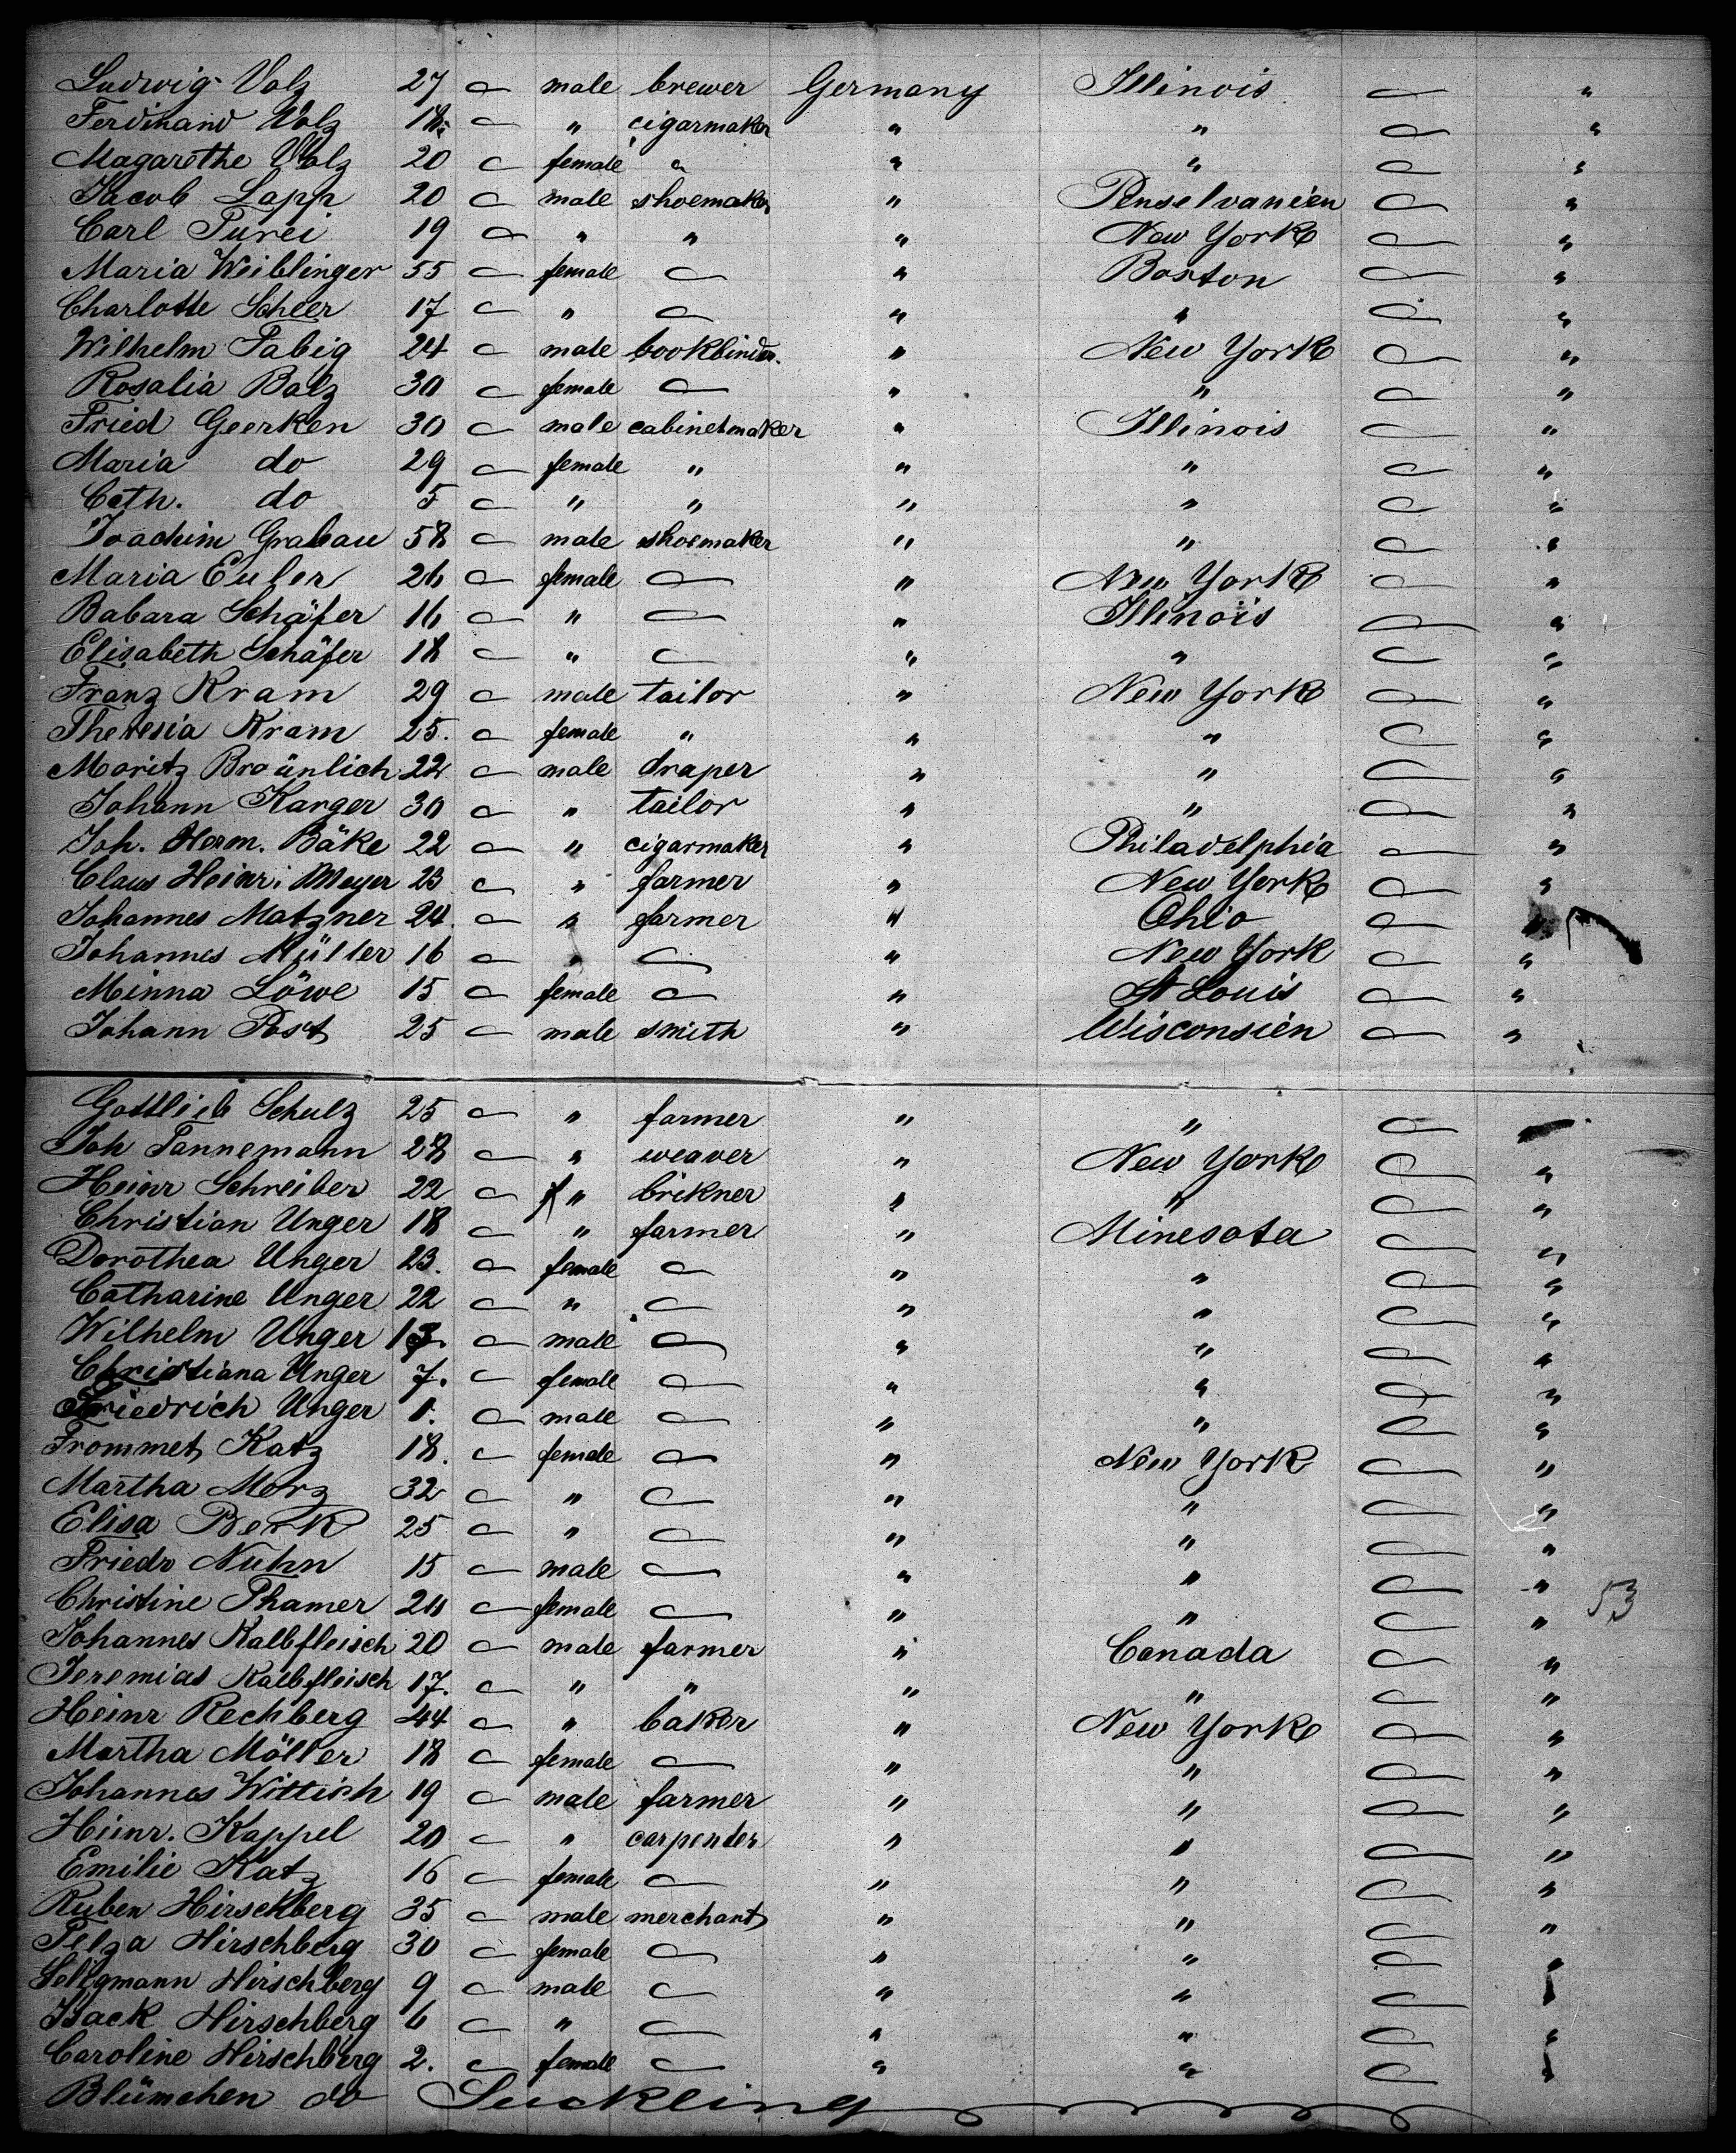 Ludwig Volz 27 male brewer Germany Illinois "
Ferdinand Volz 18 " cigarmaker " " "
Magarethe Volz 20 female " " " "
Jacob Lapp 20 male shoemaker " Penselvanien "
Carl Turei 19 " " " New York "
Maria Weiblinger 55 female " Boston "
Charlotte Scheer 17 " " " "
Wilhelm Pabig 24 male bookbinder. " New York "
Rosalia Balz 30 female " " "
Fried Geerken 30 male cabinetmaker " Illinois "
Maria do 29 female " " " "
Cath. do 5 " " " " "
Joachim Grabau 58 male shoemaker " " "
Maria Euler 26 female " New York "
Babara Schäfer 16 " " Illinois "
Elisabeth Schäfer 18 " " " "
Franz Kram 29 male tailor " New York "
Theresia Kram 25. female " " " "
Moritz Braünlich 22 male draper " " "
Johann Karger 30 " tailor " " "
Joh. Herm. Bäke 22 " cigarmaker " Philadelphia "
Claus Heinr. Meyer 23 " farmer " New York "
Johannes Matzner 24. " farmer " Ohio "
Johannes Müller 16 " " New York "
Minna Löwe 15 female " St Louis "
Johann Post 25 male smith " Wisconsien "
Gottlieb Schulz 25 " farmer " "
Joh Tannemann 28 " weaver " New York "
Heinr Schreiber 22 " brikner " " "
Christian Unger 18 " farmer " Minesota "
Dorothea Unger 23. female " " "
Catharine Unger 22 " " " "
Wilhelm Unger male " " "
Christiana Unger 7. female " " "
Friedrich Unger 1. male " " "
Frommet Katz 18. female " New York "
Martha Merz 32 " " " "
Elisa Berk 25 " " " "
Friedr Nuhn 15 male " " "
Christine Thamer female " " " 53
Johannes Kalbfleisch 20 male farmer " Canada "
Jeremias Kalbfleisch 17. " " " " "
Heinr Rechberg 44 " baker " New York "
Martha Möller 18 female " " "
Johannes Wittich 19 male farmer " " "
Heinr. Kappel 20 " carpenter " " "
Emilie Katz 16 female " " "
Ruben Hirschberg 35 male merchant " " "
Hirschberg 30 female " " "
Seligmann Hirschberg 9 male " "
Isack Hirschberg 6 " " " "
Caroline Hirschberg 2. female " "
Blümchen do Suckling